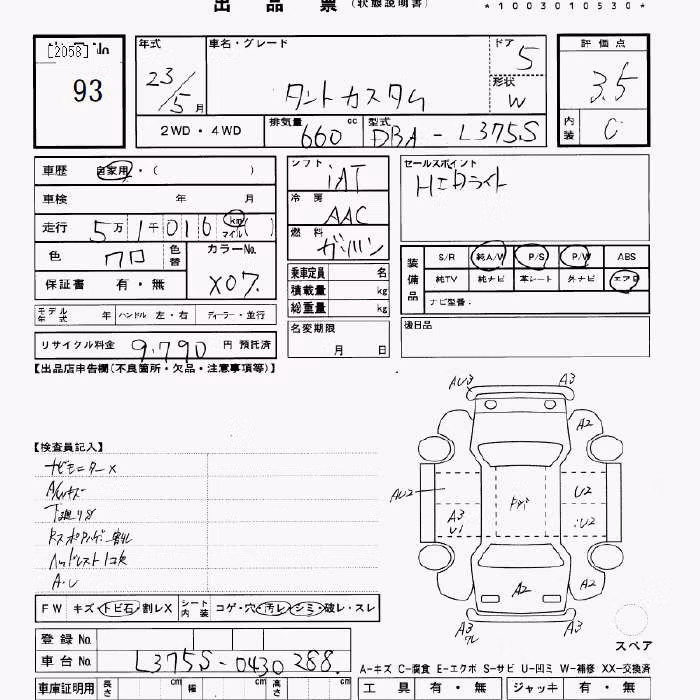 出品票 (状態説明書) *1003010530*
[2058]
93
年式 23/5月
車名・グレード タントカスタム
ドア 5
形状 W
評価点 3.5
内装 C
2WD・4WD 排気量 660 cc 型式 DBA-L375S
車歴 自家用・( )
シフト iAT
セールスポイント HIDライト
車検 年 月
冷房 AAC
走行 5万1千016 km マイル ( )
燃料 ガソリン
色 クロ 色替 カラーNo. X07.
保証書 有・無
乗車定員 名
積載量 kg
総重量 kg
装備品 S/R 純A/W P/S P/W ABS
純TV 純ナビ 革シート 外ナビ エアB
ナビ型番:
モデル年式 年 ハンドル 左・右 ディーラー・並行
名変期限 月 日
後日品
リサイクル料金 9,790 円 預託済
【出品店申告欄(不良箇所・欠品・注意事項等)】
AU3 A3
A2
【検査員記入】
ナビモニターX
A/Wキズ
下廻りサビ
ヘッドレスト1コ欠
A・U
AU2
A3
U1
U2
U2
A2
A2
A3
ワレ
A3
FW キズ トビ石・割レX シート内装 コゲ・穴・汚レ・シミ・破レ・スレ
スペア
登録No.
車台No. L375S-0430288.
A-キズ C-腐食 E-エクボ S-サビ U-凹ミ W-補修 XX-交換済
車庫証明用 長さ cm 幅 cm 高さ cm
工具 有・無 ジャッキ 有・無